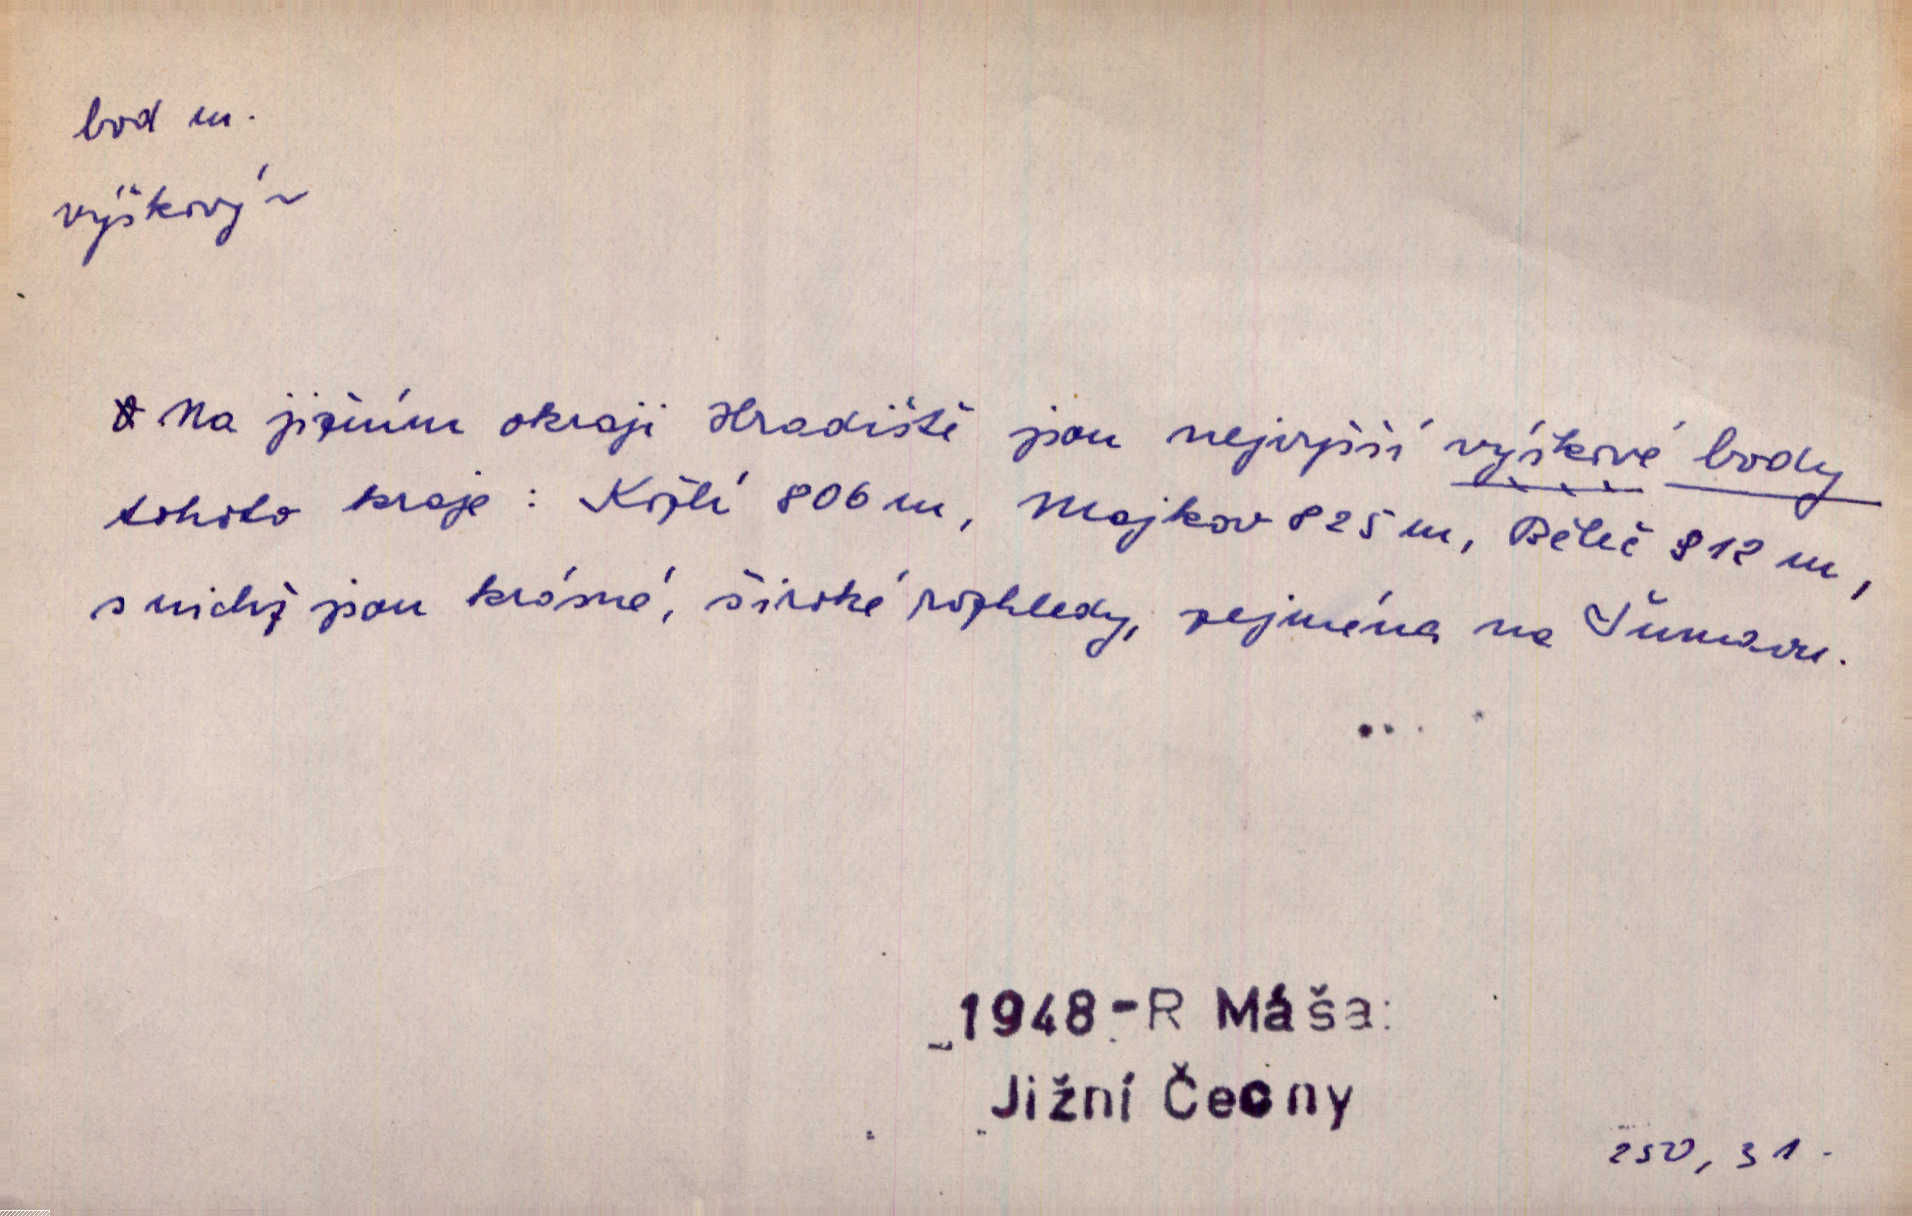 bod m.
výškový ~
Na jižním okraji Hradiště jsou nejvyšší výškové body
tohoto kraje: Kožlí 806 m, Majkov 825 m, Běleč 812 m,
s nichž jsou krásné, široké rozhledy, zejména na Šumavu.
1948-R Máša:
Jižní Čechy
250, 31.